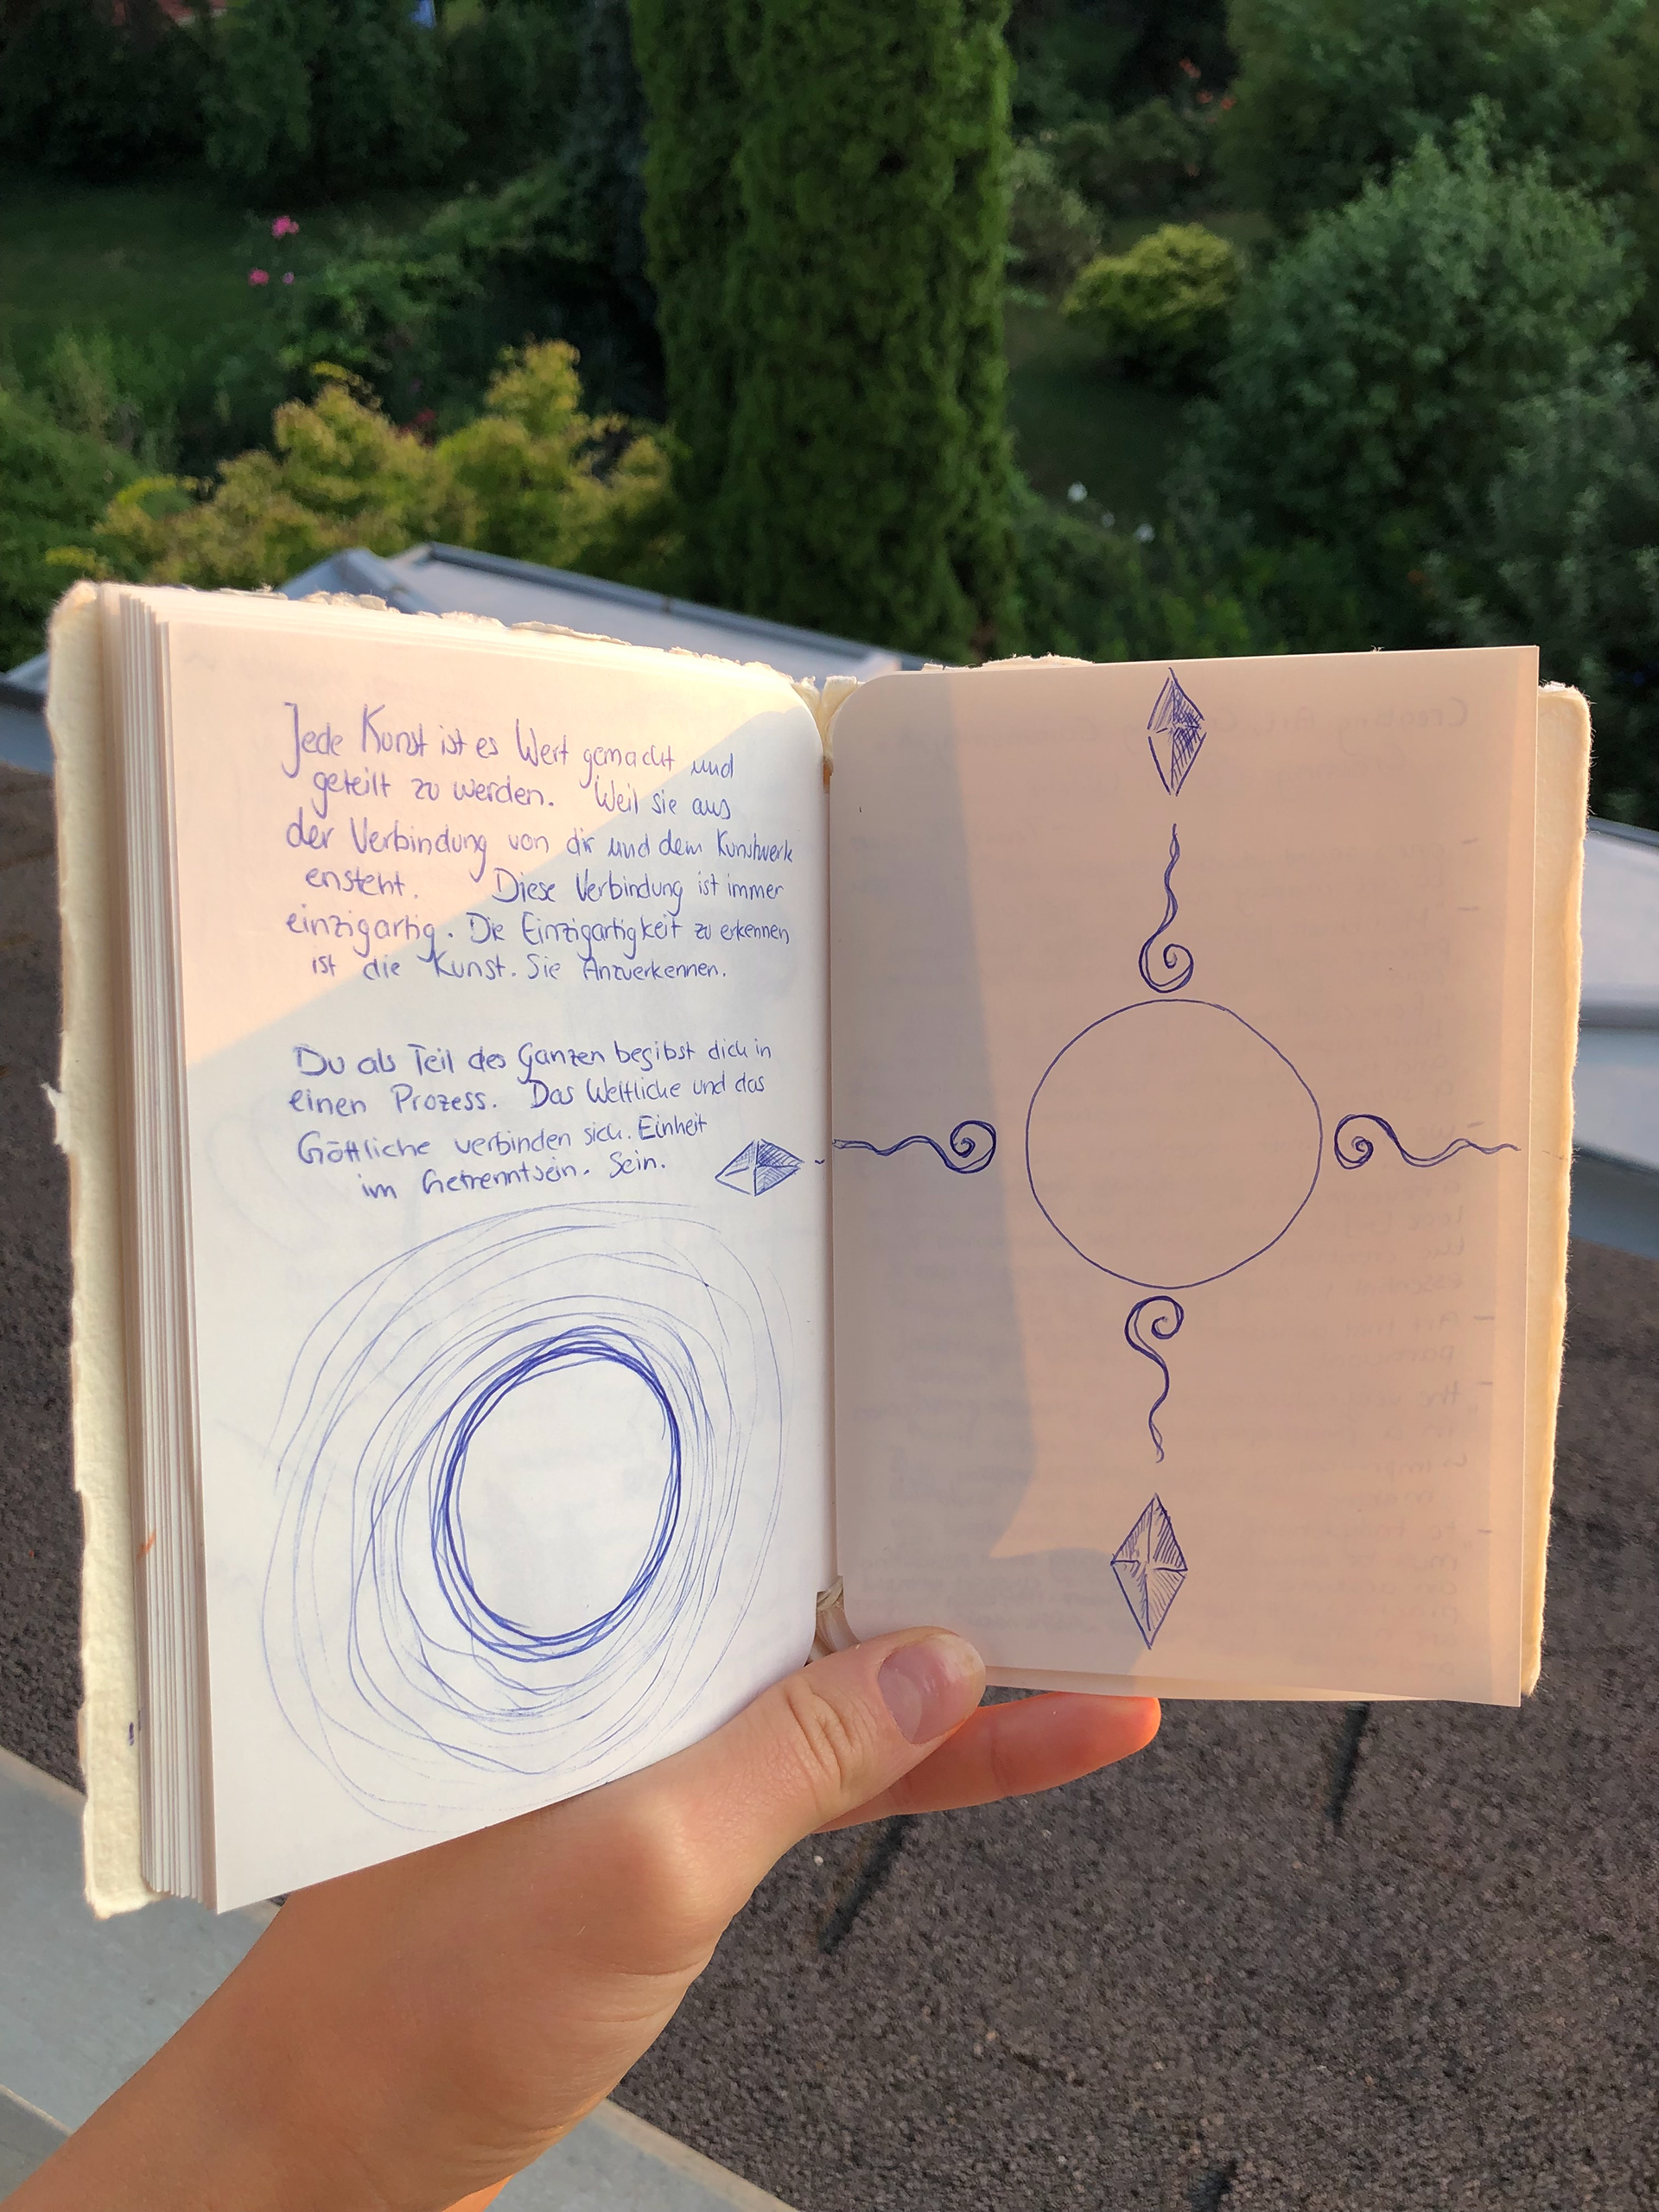 Jede Kunst ist es Wert gemacht und
geteilt zu werden. Weil sie aus
der Verbindung von dir und dem Kunstwerk
ensteht. Diese Verbindung ist immer
einzigartig. Die Einzigartigkeit zu erkennen
ist die Kunst. Sie Anzuerkennen.
Du als Teil des Ganzen begibst dich in
einen Prozess. Das Weltliche und das
Göttliche verbinden sich. Einheit
im Getrenntsein. Sein.